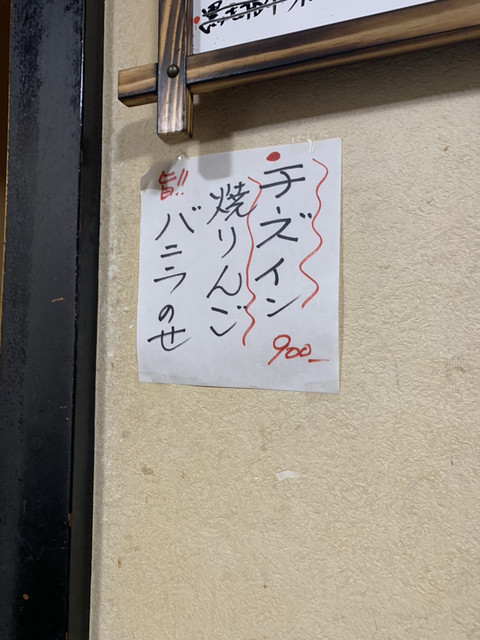 チズイン
900-
焼りんご
旨!!
バニラのせ